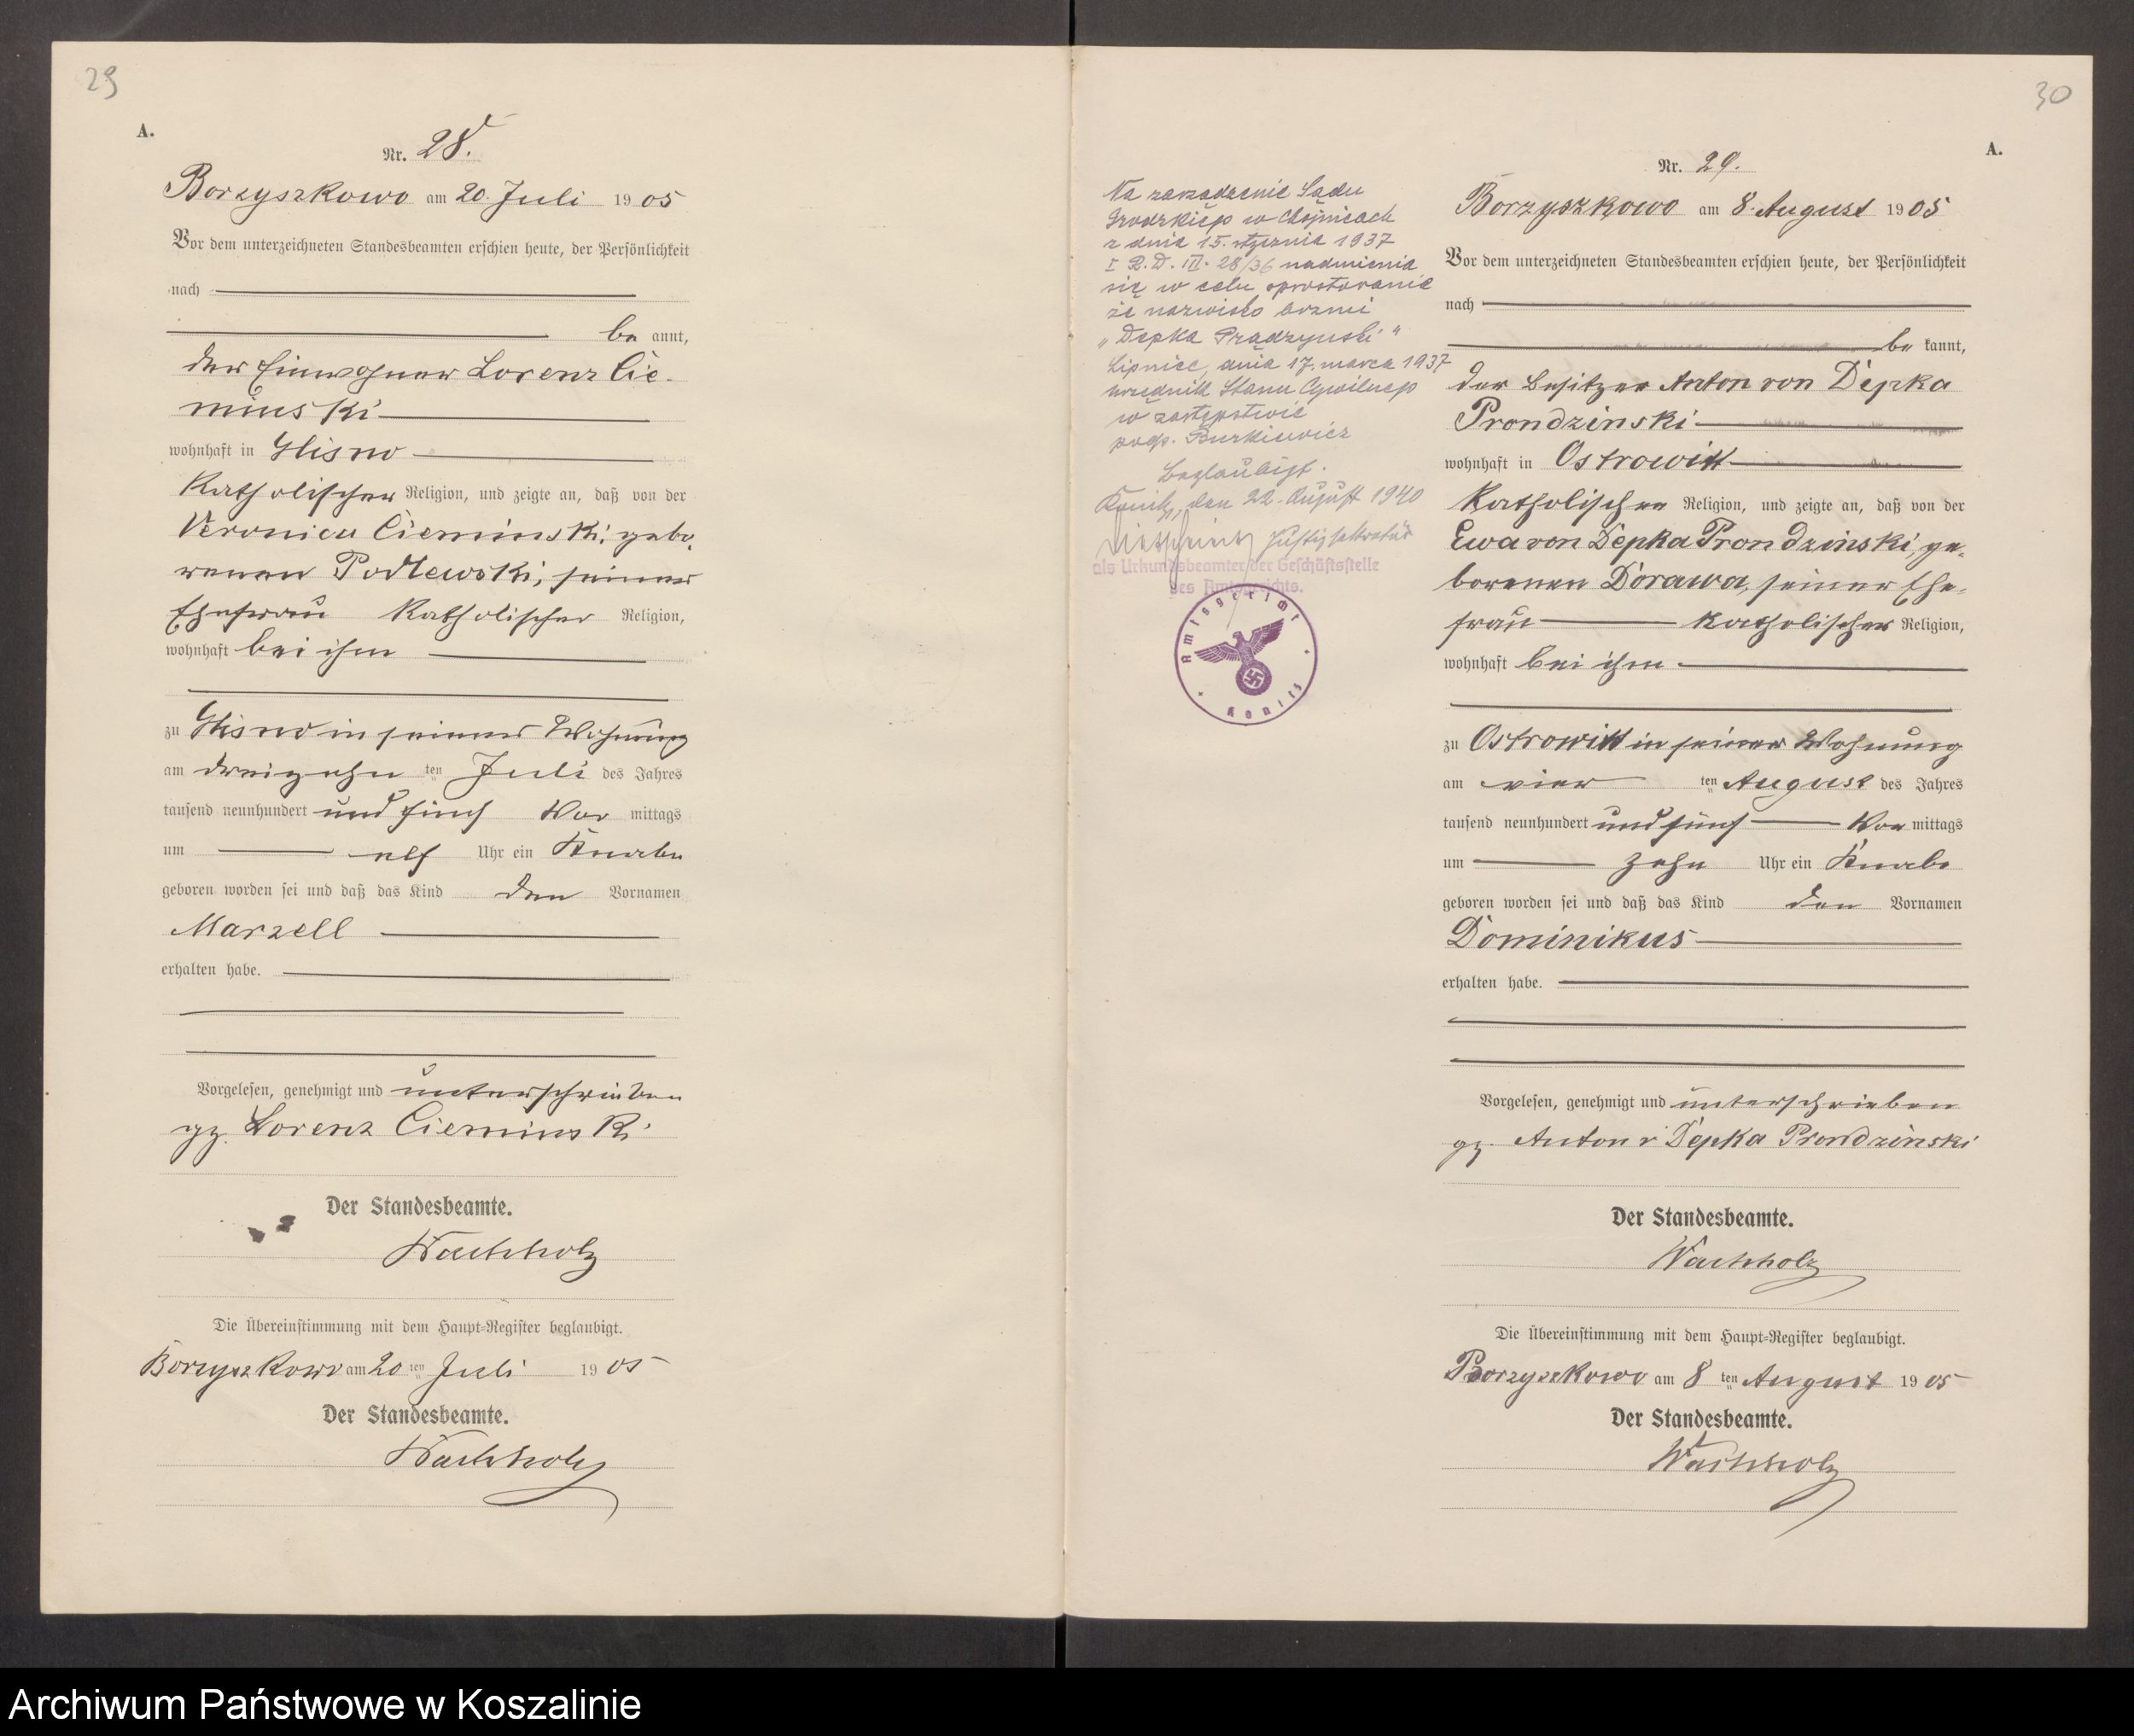 29
A.
Nr. 28.
Borzyszkowo am 20. Juli 1905
Vor dem unterzeichneten Standesbeamten erschien heute, der Persönlichkeit
nach
be annt,
der Einwohner Lorenz Cie-
minski
wohnhaft in Glisno
katholischer Religion, und zeigte an, daß von der
Veronica Cieminski, gebo-
renen Podlewski, seiner
Ehefrau katholischer Religion,
wohnhaft bei ihm
zu Glisno in seiner Wohnung
am dreizehn ten Juli des Jahres
tausend neunhundert und fünf Vor mittags
um elf Uhr ein Knabe
geboren worden sei und daß das Kind den Vornamen
Marzell
erhalten habe.
Vorgelesen, genehmigt und unterschrieben
gz. Lorenz Cieminski
Der Standesbeamte.
Wachholz
Die Übereinstimmung mit dem Haupt-Register beglaubigt.
Borzyszkowo am 20 ten Juli 1905
Der Standesbeamte.
Wachholz
30
A.
Nr. 29.
Borzyszkowo am 8. August 1905
Vor dem unterzeichneten Standesbeamten erschien heute, der Persönlichkeit
nach
be kannt,
der Besitzer Anton von Depka
Prondzinski
wohnhaft in Ostrowitt
katholischen Religion, und zeigte an, daß von der
Ewa von Depka Prondzinski, ge-
borenen Dorawa, seiner Ehe-
frau katholischer Religion,
wohnhaft bei ihm
zu Ostrowitt in seiner Wohnung
am vier ten August des Jahres
tausend neunhundert und fünf Vor mittags
um zehn Uhr ein Knabe
geboren worden sei und daß das Kind den Vornamen
Dominikus
erhalten habe.
Vorgelesen, genehmigt und unterschrieben
gz. Anton v Depka Prondzinski
Der Standesbeamte.
Wachholz
Die Übereinstimmung mit dem Haupt-Register beglaubigt.
Borzyszkowo am 8 ten August 1905
Der Standesbeamte.
Wachholz
Na zarządzenie Sądu
Grodzkiego w Chojnicach
z dnia 15. stycznia 1937
I R.D. III. 28/36 nadmienia
się w celu sprostowania
że nazwisko brzmi
„Depka Prądzyński"
Lipnice, dnia 17. marca 1937
urzędnik Stanu Cywilnego
w zastępstwie
podp. Burkiewicz
Beglaubigt.
Konitz, den 22. August 1940
Justizsekretär
als Urkundsbeamter der Geschäftsstelle
des Amtsgerichts.
Amtsgericht
Konitz
Archiwum Państwowe w Koszalinie